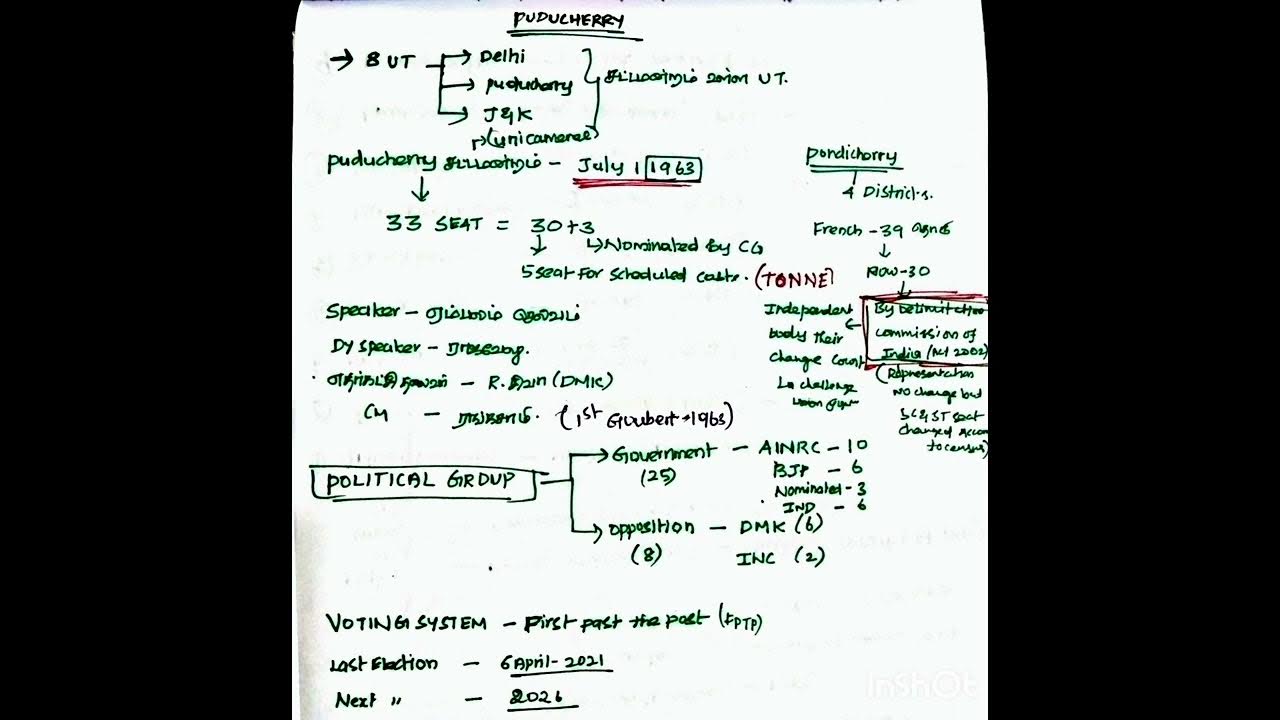 PUDUCHERRY
→ 8 UT → Delhi
→ puducherry
→ J&K
(unicameral)
சட்டமன்றம் உள்ள UT.
puducherry சட்டமன்றம் - July 1 1963
33 SEAT = 30+3
↳ Nominated By CG
5 seat For Scheduled Casts. (TONNE)
Speaker - ஏம்பலம் செல்வம்
Dy speaker - ராஜவேலு.
எதிர்கட்சி தலைவர் - R. சிவா (DMK)
CM - ரங்கசாமி. (1st Goubert → 1963)
pondicherry
4 Districts.
French - 39
Now - 30
By Delimitation
commission of
India (Act 2002)
(Representation
NO change but
SC & ST seat
changed Accor
to census)
Independent
body their
change Count
challenge
POLITICAL GROUP
→ Government - AINRC - 10
(25)
BJP - 6
Nominated - 3
IND - 6
→ opposition - DMK (6)
(8)
INC (2)
VOTING SYSTEM - First past the post (FPTP)
Last Election - 6 April - 2021
Next " - 2026
InShOt